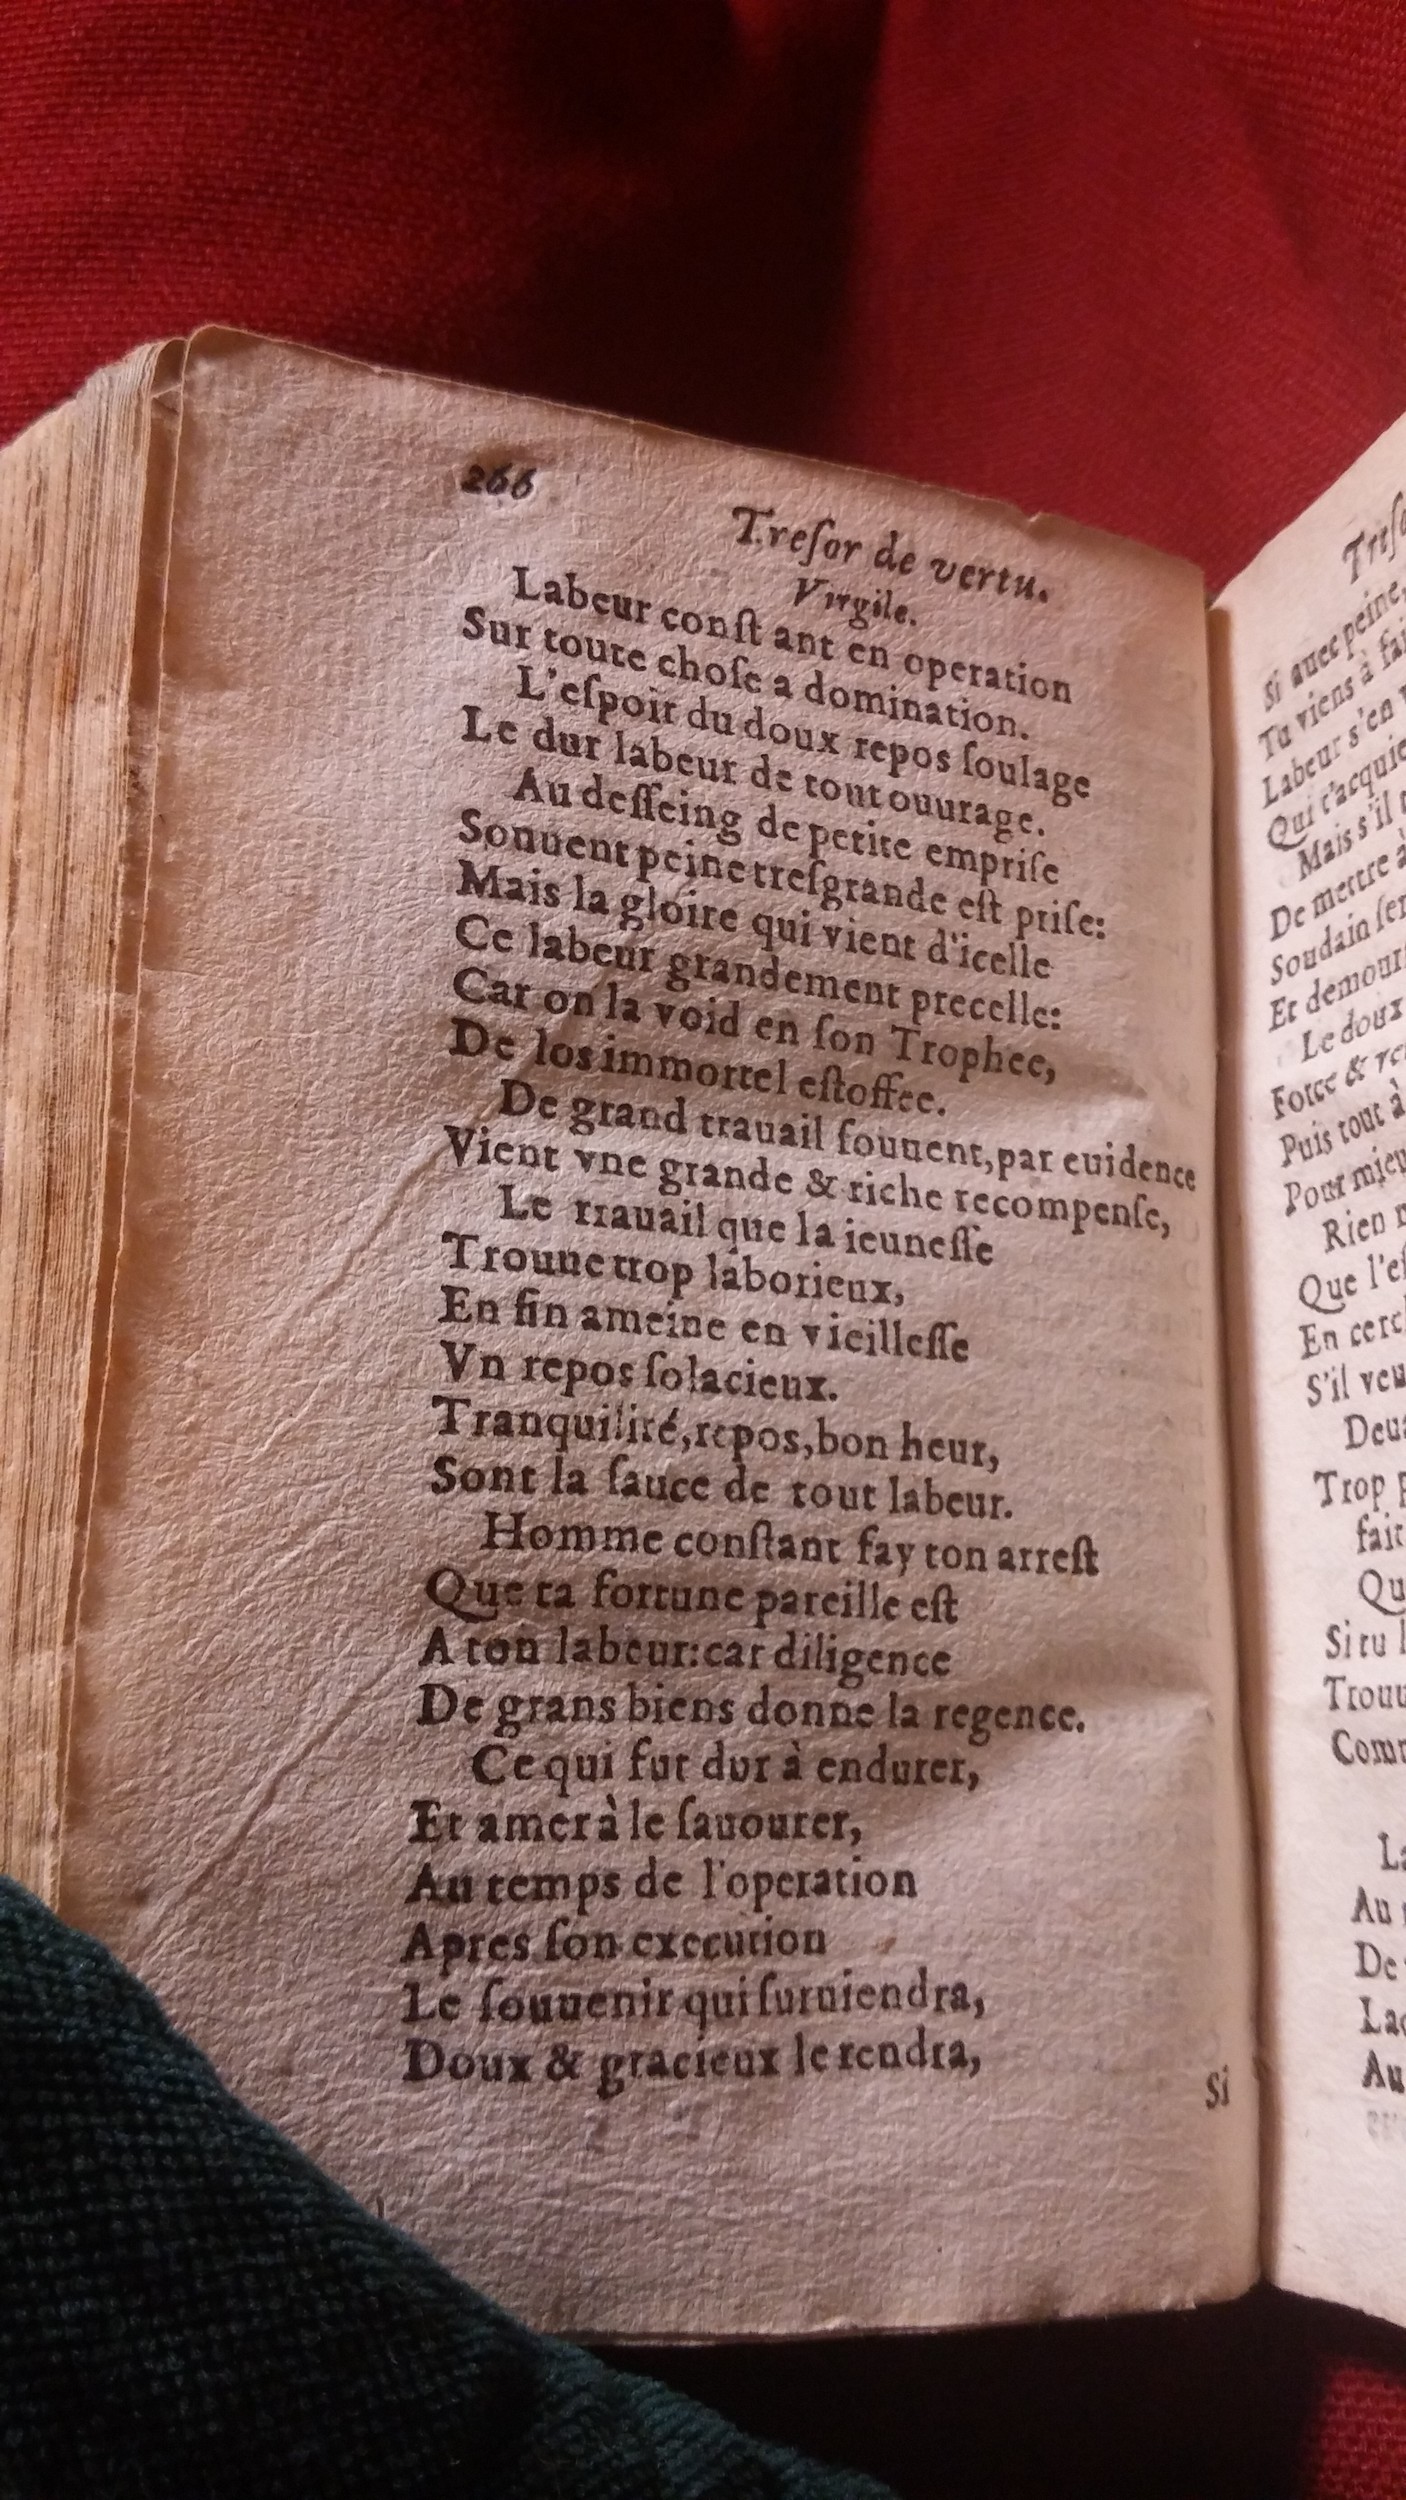 266
Treſor de vertu.
Virgile.
Labeur conſt ant en operation
Sur toute choſe a domination.
L'eſpoir du doux repos ſoulage
Le dur labeur de tout ouurage.
Au deſſeing de petite empriſe
Souuent peine treſgrande eſt priſe:
Mais la gloire qui vient d'icelle
Ce labeur grandement precelle:
Car on la void en ſon Trophee,
De los immortel eſtoffee.
De grand trauail ſouuent, par euidence
Vient vne grande & riche recompenſe,
Le trauail que la ieuneſſe
Trouue trop laborieux,
En fin ameine en vieilleſſe
Vn repos ſolacieux.
Tranquilité, repos, bon heur,
Sont la ſauce de tout labeur.
Homme conſtant fay ton arreſt
Que ta fortune pareille eſt
A ton labeur: car diligence
De grans biens donne la regence.
Ce qui fut dur à endurer,
Et amer à le ſauourer,
Au temps de l'operation
Apres ſon execution
Le ſouuenir qui ſuruiendra,
Doux & gracieux le rendra,
Si
Si auec peine,
Tu viens à
Labeur s'en
Qui t'acquie
Mais s'il
De mettre à
Soudain
Et
Le doux
Force &
Puis tout à
Pour
Rien
Que
En
S'il
Trop
fait
Qu
Si tu
Trouu
Au
De
Au